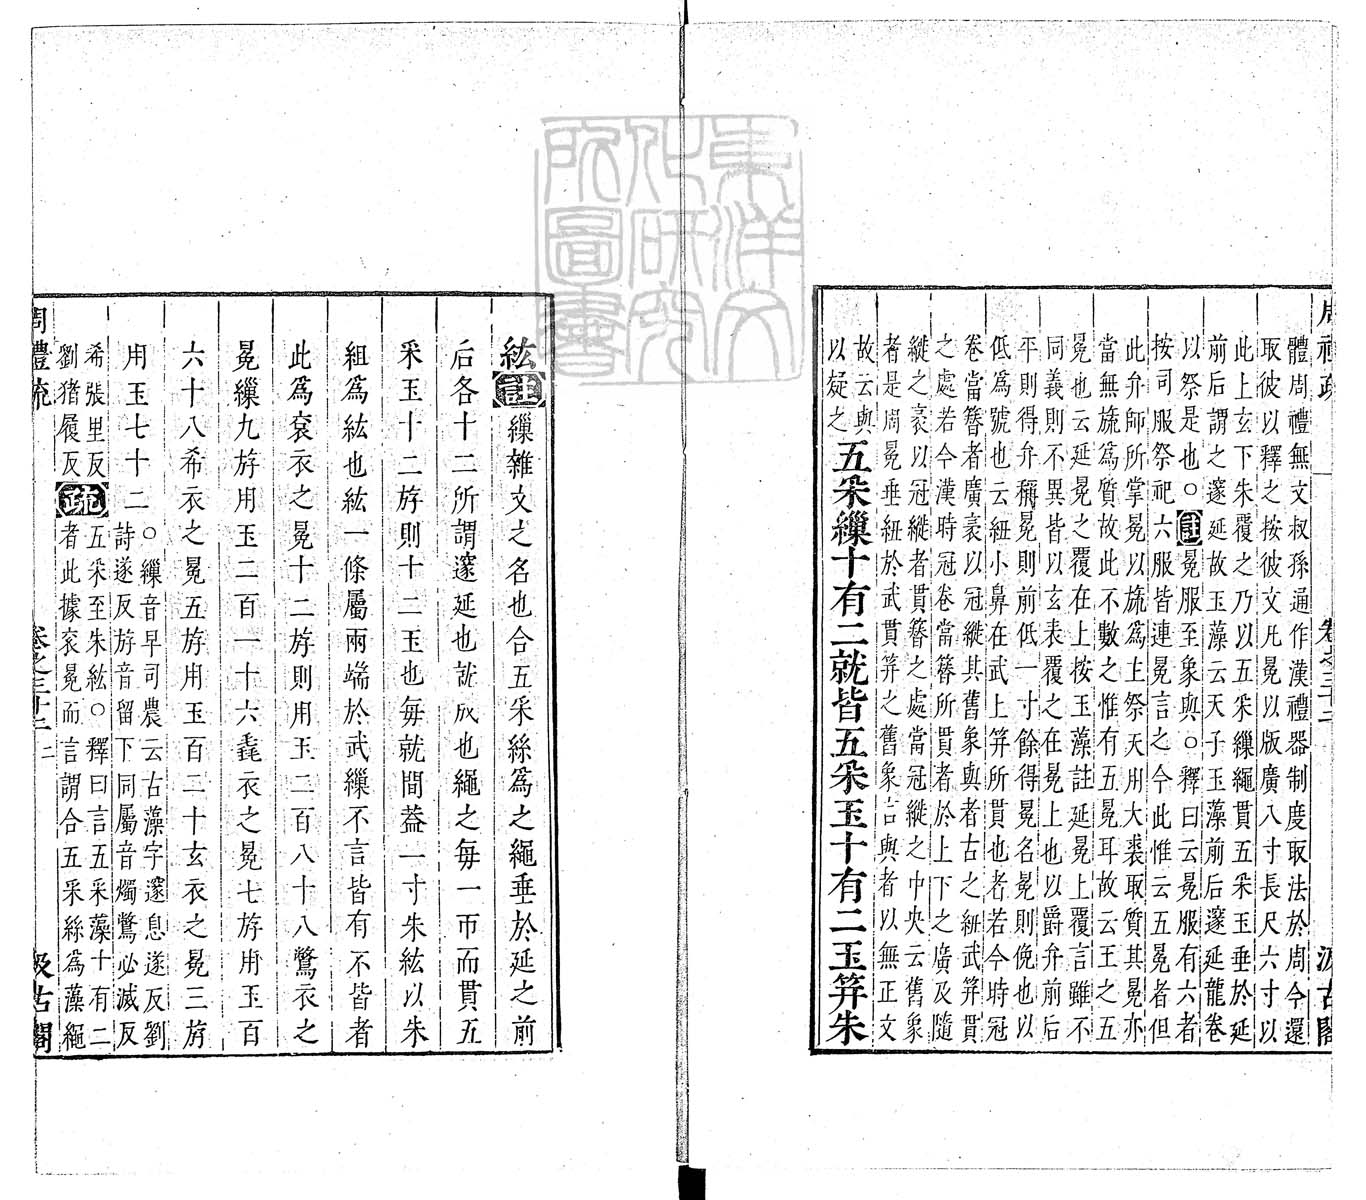 周禮疏 卷之三十二 汲古閣
體周禮無文叔孫通作漢禮器制度取法於周今還
取彼以釋之按彼文凡冕以版廣八寸長尺六寸以
此上玄下朱覆之乃以五采繅繩貫五采玉垂於延
前后謂之邃延故玉藻云天子玉藻前后邃延龍卷
以祭是也○註冕服至象與○釋曰云冕服有六者
按司服祭祀六服皆連冕言之今此惟云五冕者但
此弁師所掌冕以旒爲上祭天用大裘取質其冕亦
當無旒爲質故此不數之惟有五冕耳故云王之五
冕也云延冕之覆在上按玉藻註延冕上覆言雖不
同義則不異皆以玄表覆之在冕上也以爵弁前后
平則得弁稱冕則前低一寸餘得冕名冕則俛也以
低爲號也云紐小鼻在武上笄所貫也者若今時冠
卷當簪者廣袤以冠縰其舊象與者古之紐武笄貫
之處若今漢時冠卷當簪所貫者於上下之廣及隨
縱之袤以冠縰者貫簪之處當冠縰之中央云舊象
者是周冕垂紐於武貫笄之舊象言與者以無正文
故云與
以疑之
五采繅十有二就皆五采玉十有二玉笄朱
紘註繅雜文之名也合五采絲爲之繩垂於延之前
后各十二所謂邃延也就成也繩之每一帀而貫五
采玉十二斿則十二玉也每就間蓋一寸朱紘以朱
組爲紘也紘一條屬兩端於武繅不言皆有不皆者
此爲袞衣之冕十二斿則用玉二百八十八鷩衣之
冕繅九斿用玉二百一十六毳衣之冕七斿用玉百
六十八希衣之冕五斿用玉百二十玄衣之冕三斿
用玉七十二
○繅音早司農云古藻字邃息遂反劉
詩遂反斿音留下同屬音燭鷩必滅反
希張里反
劉豬履反
疏
五采至朱紘○釋曰言五采藻十有二
者此據袞冕而言謂合五采絲爲藻繩
周禮疏 卷之三十二 二 汲古閣
東洋文化研究所圖書